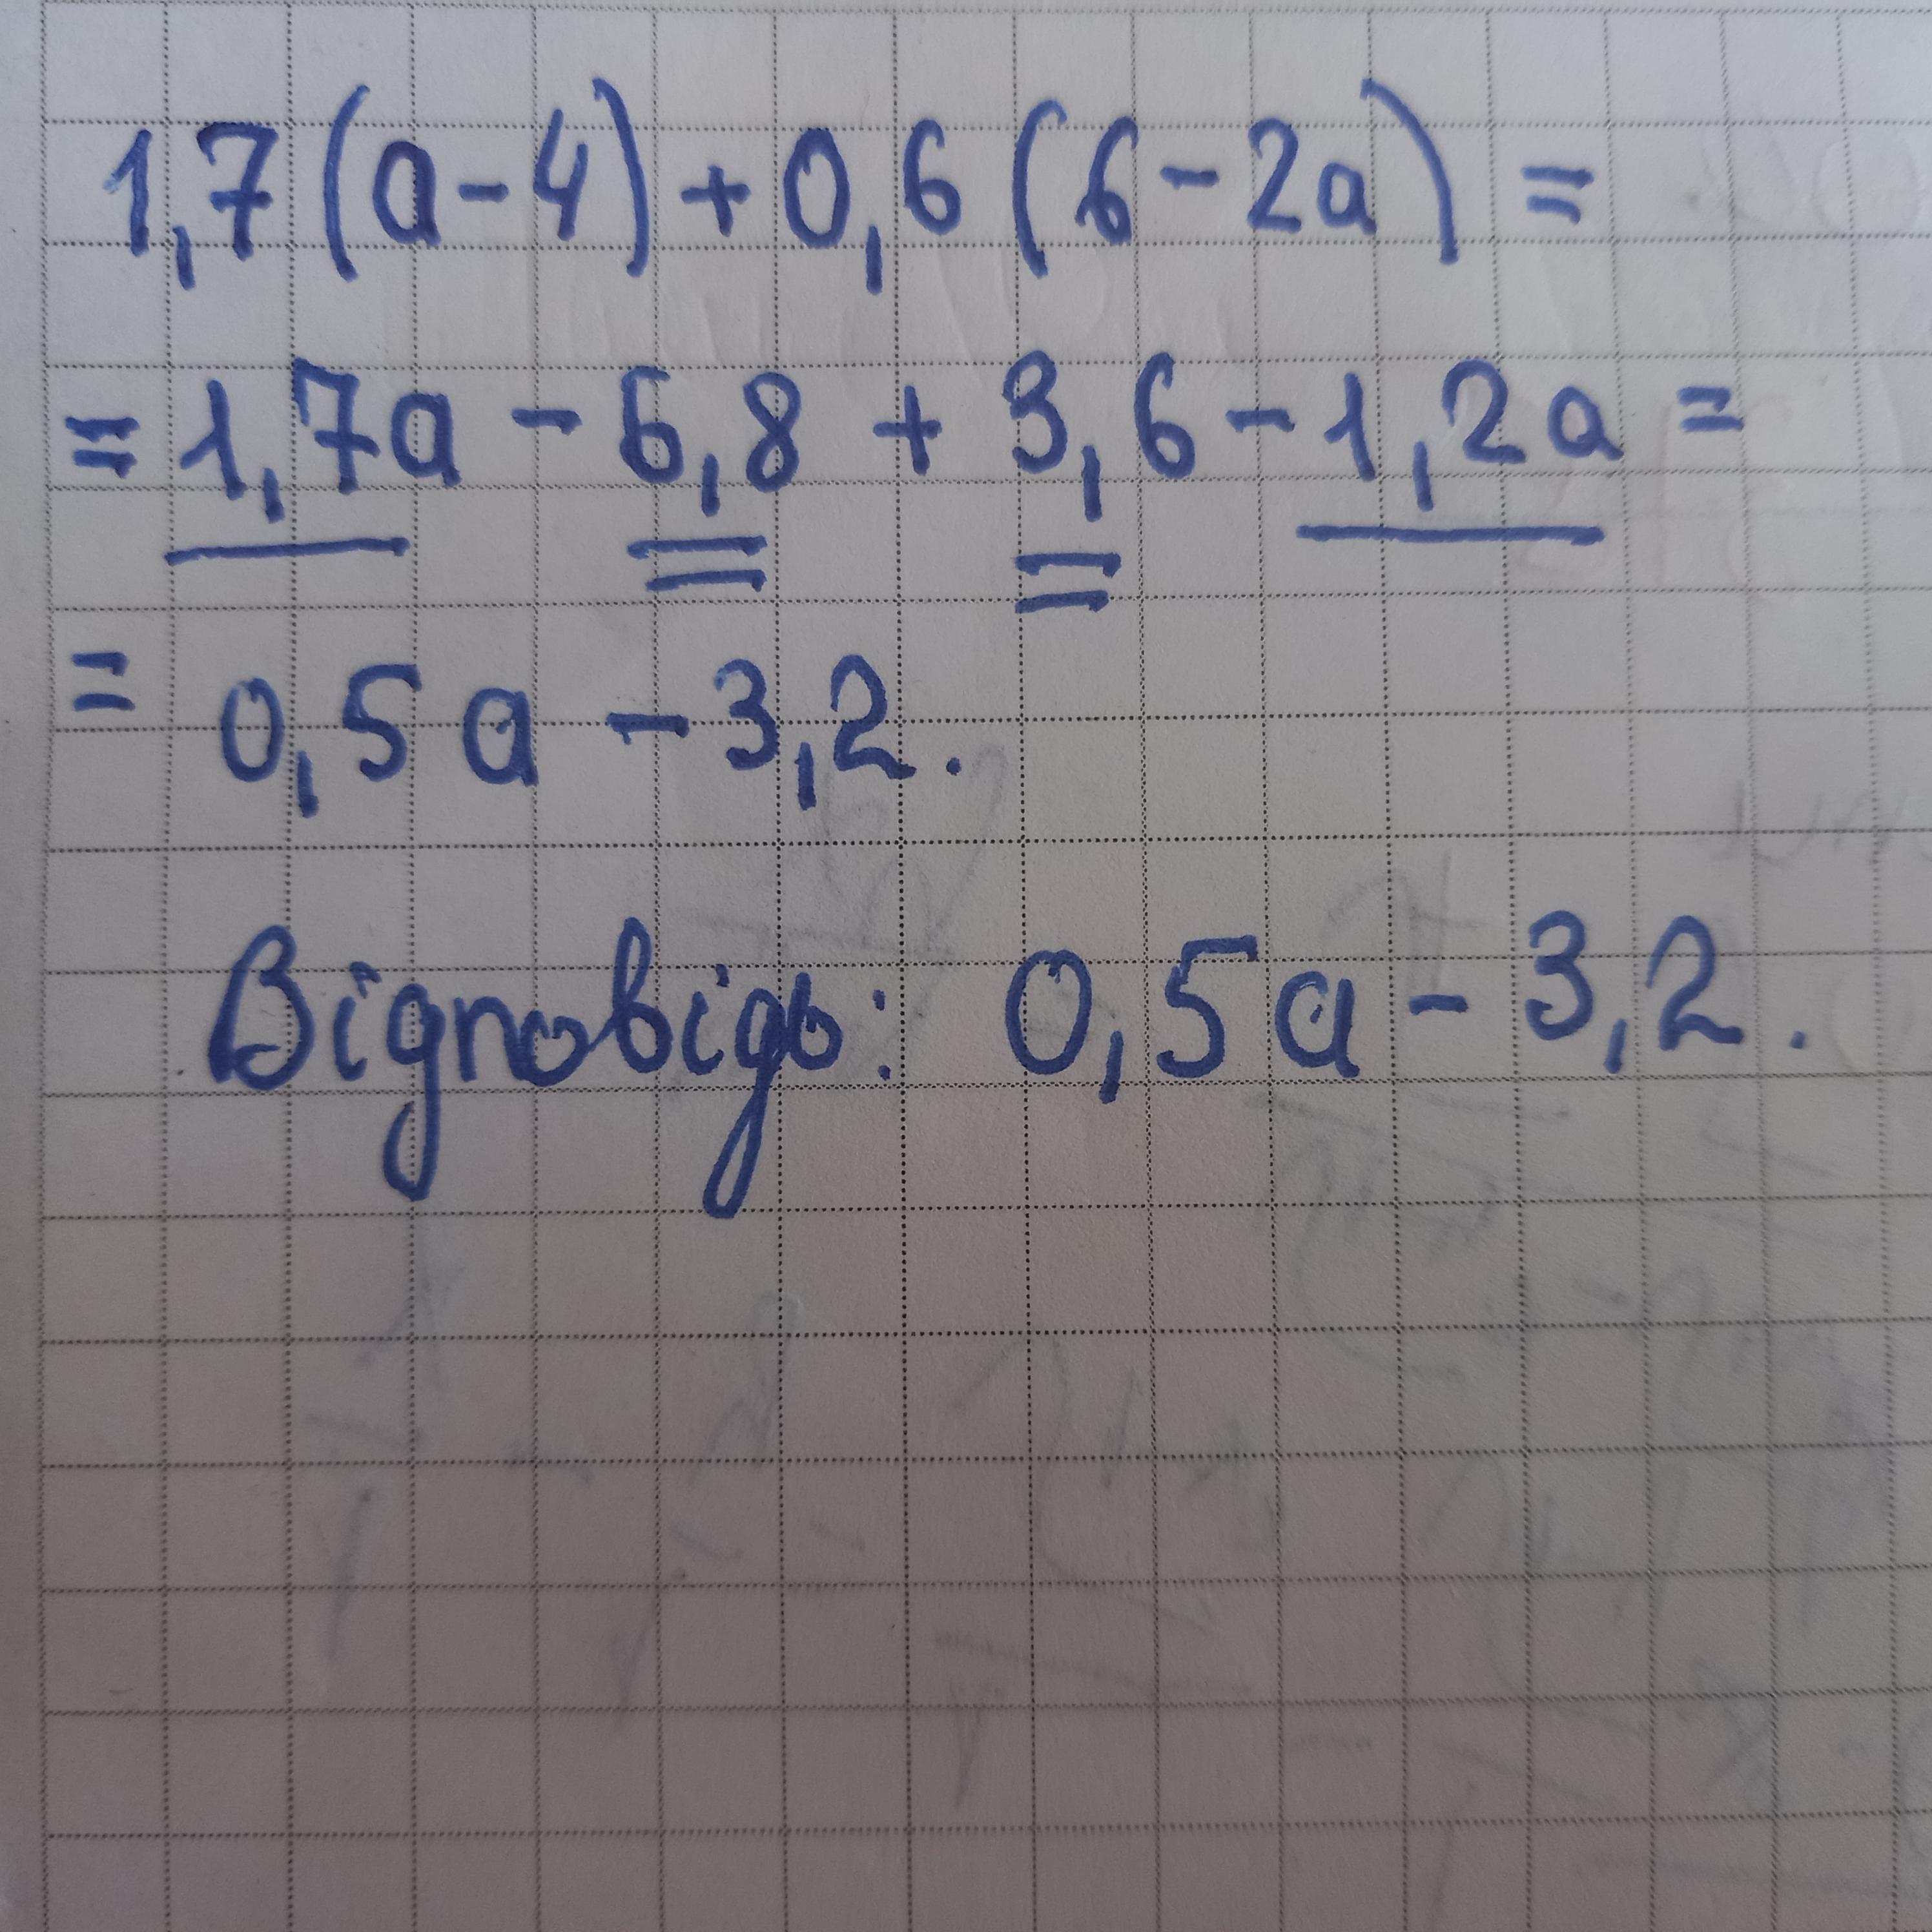 1,7(a-4)+0,6(6-2a)=
=1,7a-6,8+3,6-1,2a=
=0,5a-3,2.
Відповідь: 0,5a-3,2.